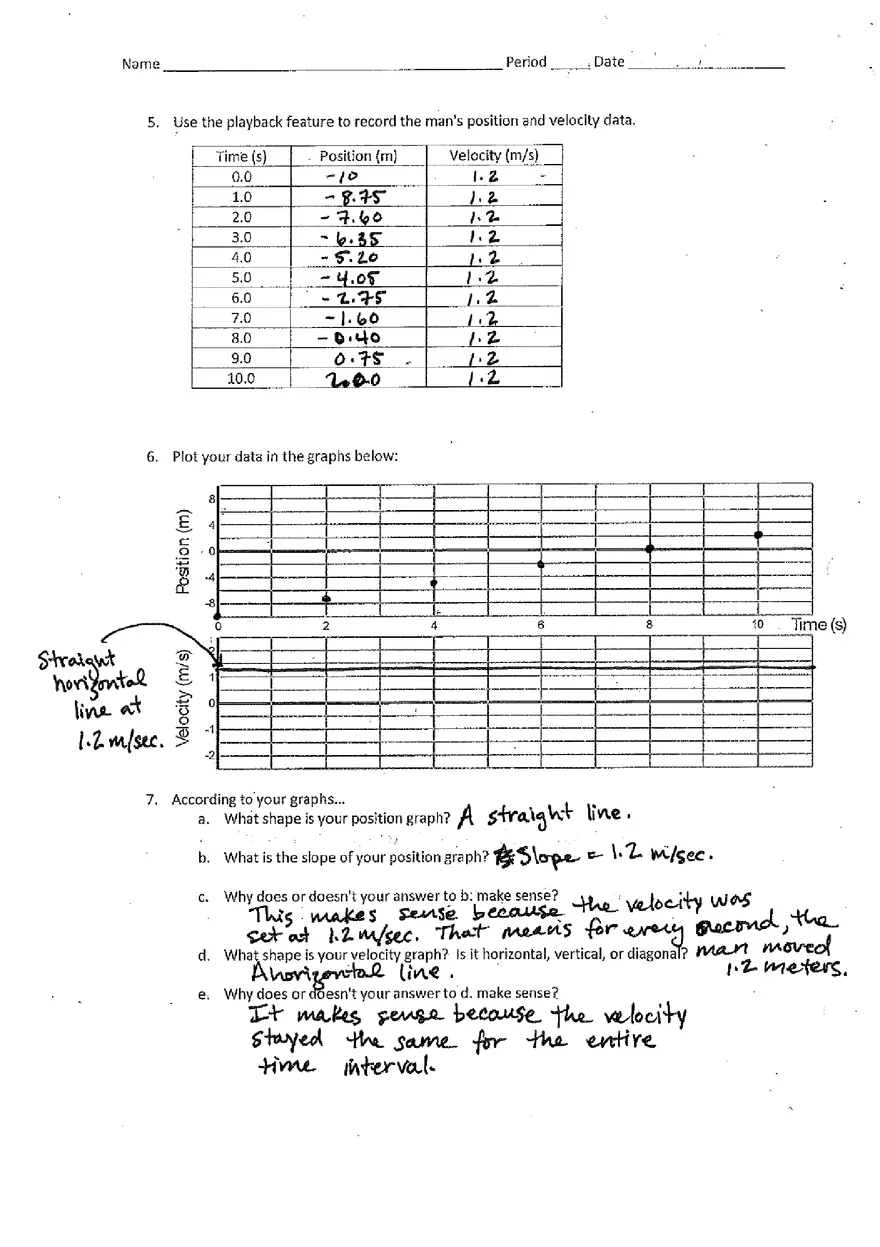 Name Period , Date
5. Use the playback feature to record the man's position and velocity data.
Time (s) Position (m) Velocity (m/s)
0.0 -10 1.2
1.0 -8.75 1.2
2.0 -7.60 1.2
3.0 -6.35 1.2
4.0 -5.20 1.2
5.0 -4.05 1.2
6.0 -2.75 1.2
7.0 -1.60 1.2
8.0 -0.40 1.2
9.0 0.75 1.2
10.0 2.00 1.2
6. Plot your data in the graphs below:
Position (m)
8
4
0
-4
-8
0 2 4 6 8 10 Time (s)
Velocity (m/s)
2
1
0
-1
-2
Straight
horizontal
line at
1.2 m/sec.
7. According to your graphs...
a. What shape is your position graph? A straight line.
b. What is the slope of your position graph? Slope = 1.2 m/sec.
c. Why does or doesn't your answer to b. make sense?
This makes sense because the velocity was
set at 1.2 m/sec. That means for every second, the
man moved
1.2 meters.
d. What shape is your velocity graph? Is it horizontal, vertical, or diagonal?
A horizontal line.
e. Why does or doesn't your answer to d. make sense?
It makes sense because the velocity
stayed the same for the entire
time interval.